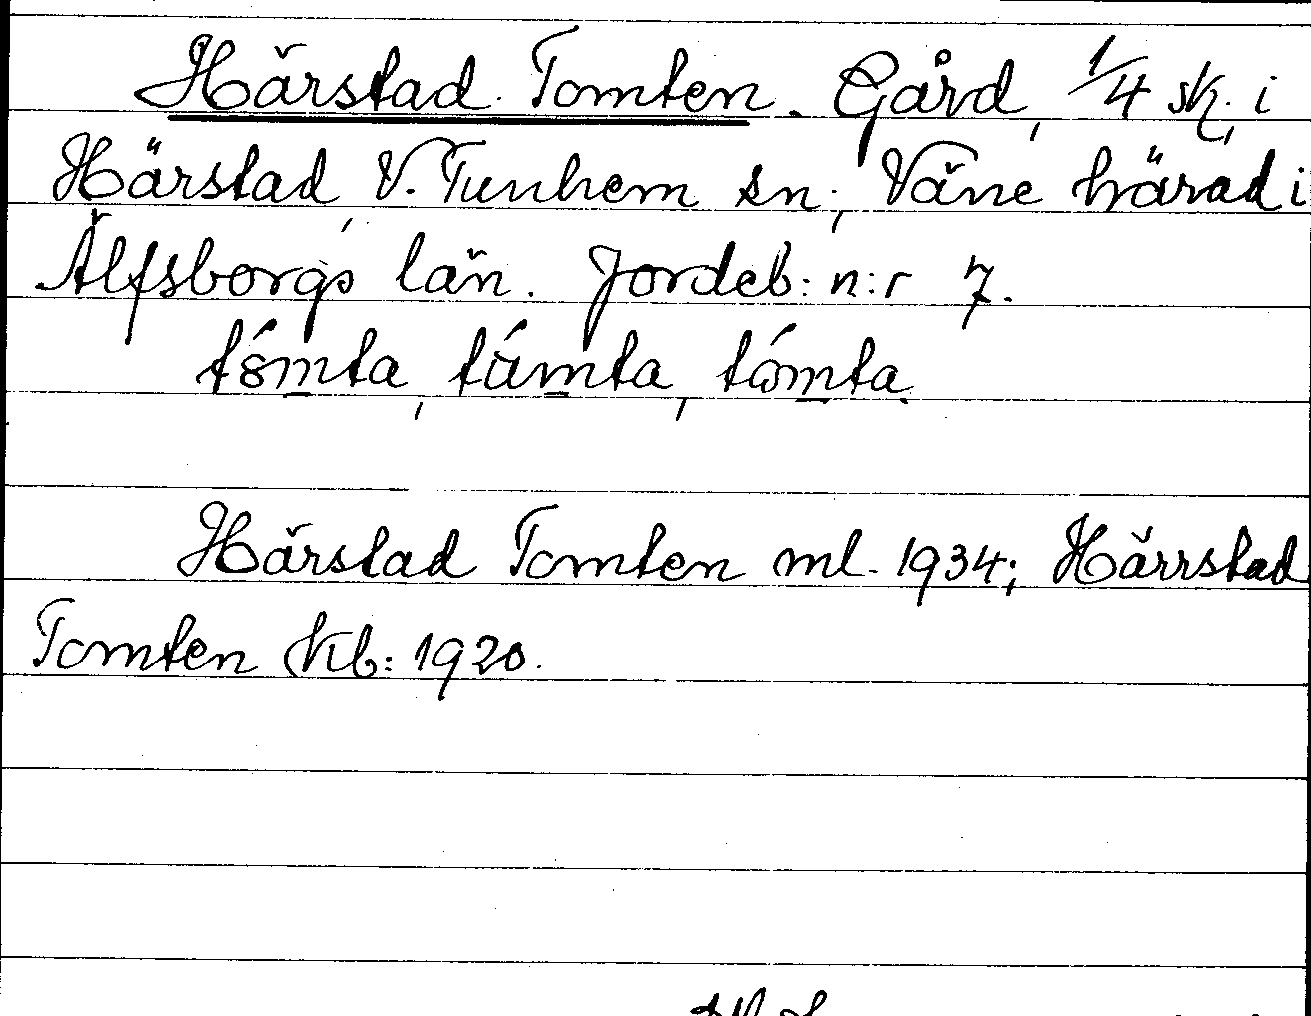 Härstad Tomten. Gård, 1/4 sk. i
Härstad, V. Tunhem sn., Väne härad i
Älfsborgs län. Jordeb: n:r 7.
tómta, támta, tómta.
Härstad Tomten ml. 1934; Härrstad
Tomten Kb: 1920.